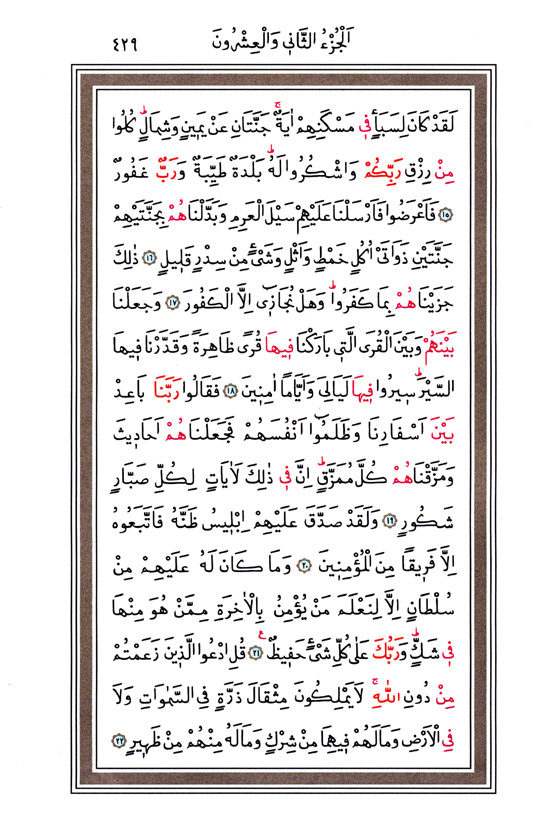 اَلْجُزْءُ الثَّانِي وَالْعِشْرُونَ
٤٢٩
لَقَدْ كَانَ لِسَبَأٍ فِي مَسْكَنِهِمْ اٰيَةٌۚ جَنَّتَانِ عَنْ يَمِينٍ وَشِمَالٍۜ كُلُوا
مِنْ رِزْقِ رَبِّكُمْ وَاشْكُرُوا لَهُۜ بَلْدَةٌ طَيِّبَةٌ وَرَبٌّ غَفُورٌ
﴿١٥﴾ فَاَعْرَضُوا فَاَرْسَلْنَا عَلَيْهِمْ سَيْلَ الْعَرِمِ وَبَدَّلْنَاهُمْ بِجَنَّتَيْهِمْ
جَنَّتَيْنِ ذَوَاتَيْ اُكُلٍ خَمْطٍ وَاَثْلٍ وَشَيْءٍ مِنْ سِدْرٍ قَلِيلٍ ﴿١٦﴾ ذٰلِكَ
جَزَيْنَاهُمْ بِمَا كَفَرُواۜ وَهَلْ نُجَازِٓي اِلَّا الْكَفُورَ ﴿١٧﴾ وَجَعَلْنَا
بَيْنَهُمْ وَبَيْنَ الْقُرَى الَّتِي بَارَكْنَا فِيهَا قُرًى ظَاهِرَةً وَقَدَّرْنَا فِيهَا
السَّيْرَۜ سِيرُوا فِيهَا لَيَالِيَ وَاَيَّامًا اٰمِنِينَ ﴿١٨﴾ فَقَالُوا رَبَّنَا بَاعِدْ
بَيْنَ اَسْفَارِنَا وَظَلَمُٓوا اَنْفُسَهُمْ فَجَعَلْنَاهُمْ اَحَادِيثَ
وَمَزَّقْنَاهُمْ كُلَّ مُمَزَّقٍۜ اِنَّ فِي ذٰلِكَ لَاٰيَاتٍ لِكُلِّ صَبَّارٍ
شَكُورٍ ﴿١٩﴾ وَلَقَدْ صَدَّقَ عَلَيْهِمْ اِبْلِيسُ ظَنَّهُ فَاتَّبَعُوهُ
اِلَّا فَرِيقًا مِنَ الْمُؤْمِنِينَ ﴿٢٠﴾ وَمَا كَانَ لَهُ عَلَيْهِمْ مِنْ
سُلْطَانٍ اِلَّا لِنَعْلَمَ مَنْ يُؤْمِنُ بِالْاٰخِرَةِ مِمَّنْ هُوَ مِنْهَا
فِي شَكٍّۜ وَرَبُّكَ عَلٰى كُلِّ شَيْءٍ حَفِيظٌ ﴿٢١﴾ قُلِ ادْعُوا الَّذِينَ زَعَمْتُمْ
مِنْ دُونِ اللّٰهِۚ لَا يَمْلِكُونَ مِثْقَالَ ذَرَّةٍ فِي السَّمٰوَاتِ وَلَا
فِي الْاَرْضِ وَمَا لَهُمْ فِيهِمَا مِنْ شِرْكٍ وَمَا لَهُ مِنْهُمْ مِنْ ظَهِيرٍ ﴿٢٢﴾